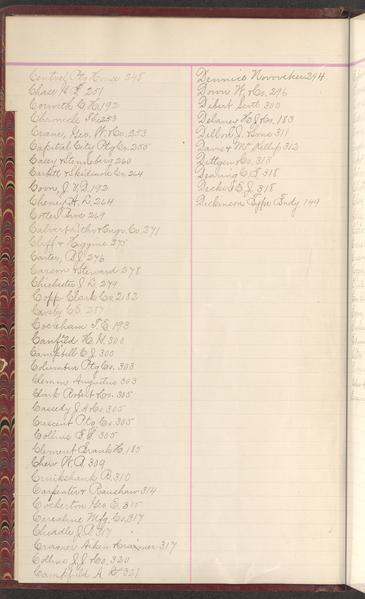 Central Ptg House 248
Chase H. F. 251
Coworth C. H. 192
Chronicle The 253
Crane, Geo. W. & Co. 253
Capital City Ptg Co. 255
Casey & Stenneberg 260
Corbitt & Skidmore Co. 264
Coon, J. V. D. 192
Cheney H. D. 264
Cotter Dave 269
Calvert Litho & Engv. Co. 271
Cliff & Higgins 275
Carter, A. J. 276
Carson & Steward 278
Chichester J. D. 279
Copp Clark Co. 2182
Cavsly C. B. 287
Coversham T. E. 193
Canfild H. H. 300
Campbell C. J. 300
Columbia Ptg Co. 303
Clemm Augustus 303
Clark Robert & Co. 305
Cassedy J. A. & Co. 305
Crescent Ptg Co. 305
Collins E. F. 305
Clement Frank H. 185
Chew W. A. 309
Cruikshank B. 310
Carpenter & Ranshaw 314
Cockerton Geo. E. 315
Cerealine Mfg. Co. 317
Chiddle J. A. 317
Cranner Arken & Crainner 317
Collins J. J. & Co. 320
Campfield A. D. 321
Dennis Novovcken 294
Down W. & Co. 296
Dibert Scott 300
Delaney H. J. & Co. 183
Dillon J. & Sons 311
Davis & McKillip 312
Dittgen & Co. 318
Dearing C. T. 318
Decker E. J. 318
Dickinson Type Fndy 149